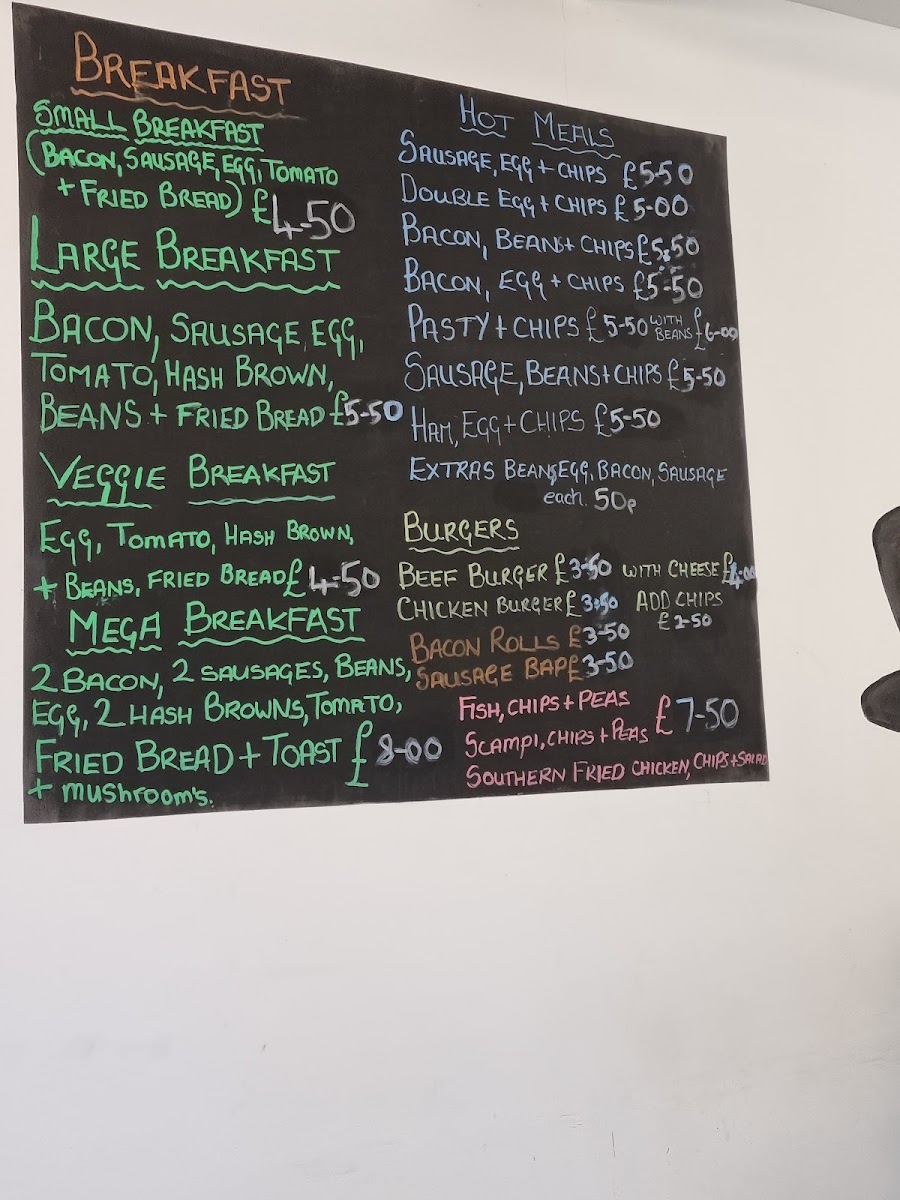 BREAKFAST
SMALL BREAKFAST
(BACON, SAUSAGE, EGG, TOMATO
+ FRIED BREAD) £4-50
LARGE BREAKFAST
BACON, SAUSAGE, EGG,
TOMATO, HASH BROWN,
BEANS + FRIED BREAD £5-50
VEGGIE BREAKFAST
EGG, TOMATO, HASH BROWN,
+ BEANS, FRIED BREAD £4-50
MEGA BREAKFAST
2 BACON, 2 SAUSAGES, BEANS,
EGG, 2 HASH BROWNS, TOMATO,
FRIED BREAD + TOAST £8-00
+ MUSHROOM'S.
HOT MEALS
SAUSAGE, EGG + CHIPS £5-50
DOUBLE EGG + CHIPS £5-00
BACON, BEANS + CHIPS £5.50
BACON, EGG + CHIPS £5-50
PASTY + CHIPS £5-50 WITH BEANS £6-00
SAUSAGE, BEANS + CHIPS £5-50
HAM, EGG + CHIPS £5-50
EXTRAS BEANS, EGG, BACON, SAUSAGE
each. 50p
BURGERS
BEEF BURGER £3-50 WITH CHEESE £4-00
CHICKEN BURGER £3-50 ADD CHIPS
£2-50
BACON ROLLS £3-50
SAUSAGE BAP £3-50
FISH, CHIPS + PEAS
SCAMPI, CHIPS + PEAS £7-50
SOUTHERN FRIED CHICKEN, CHIPS + SALAD